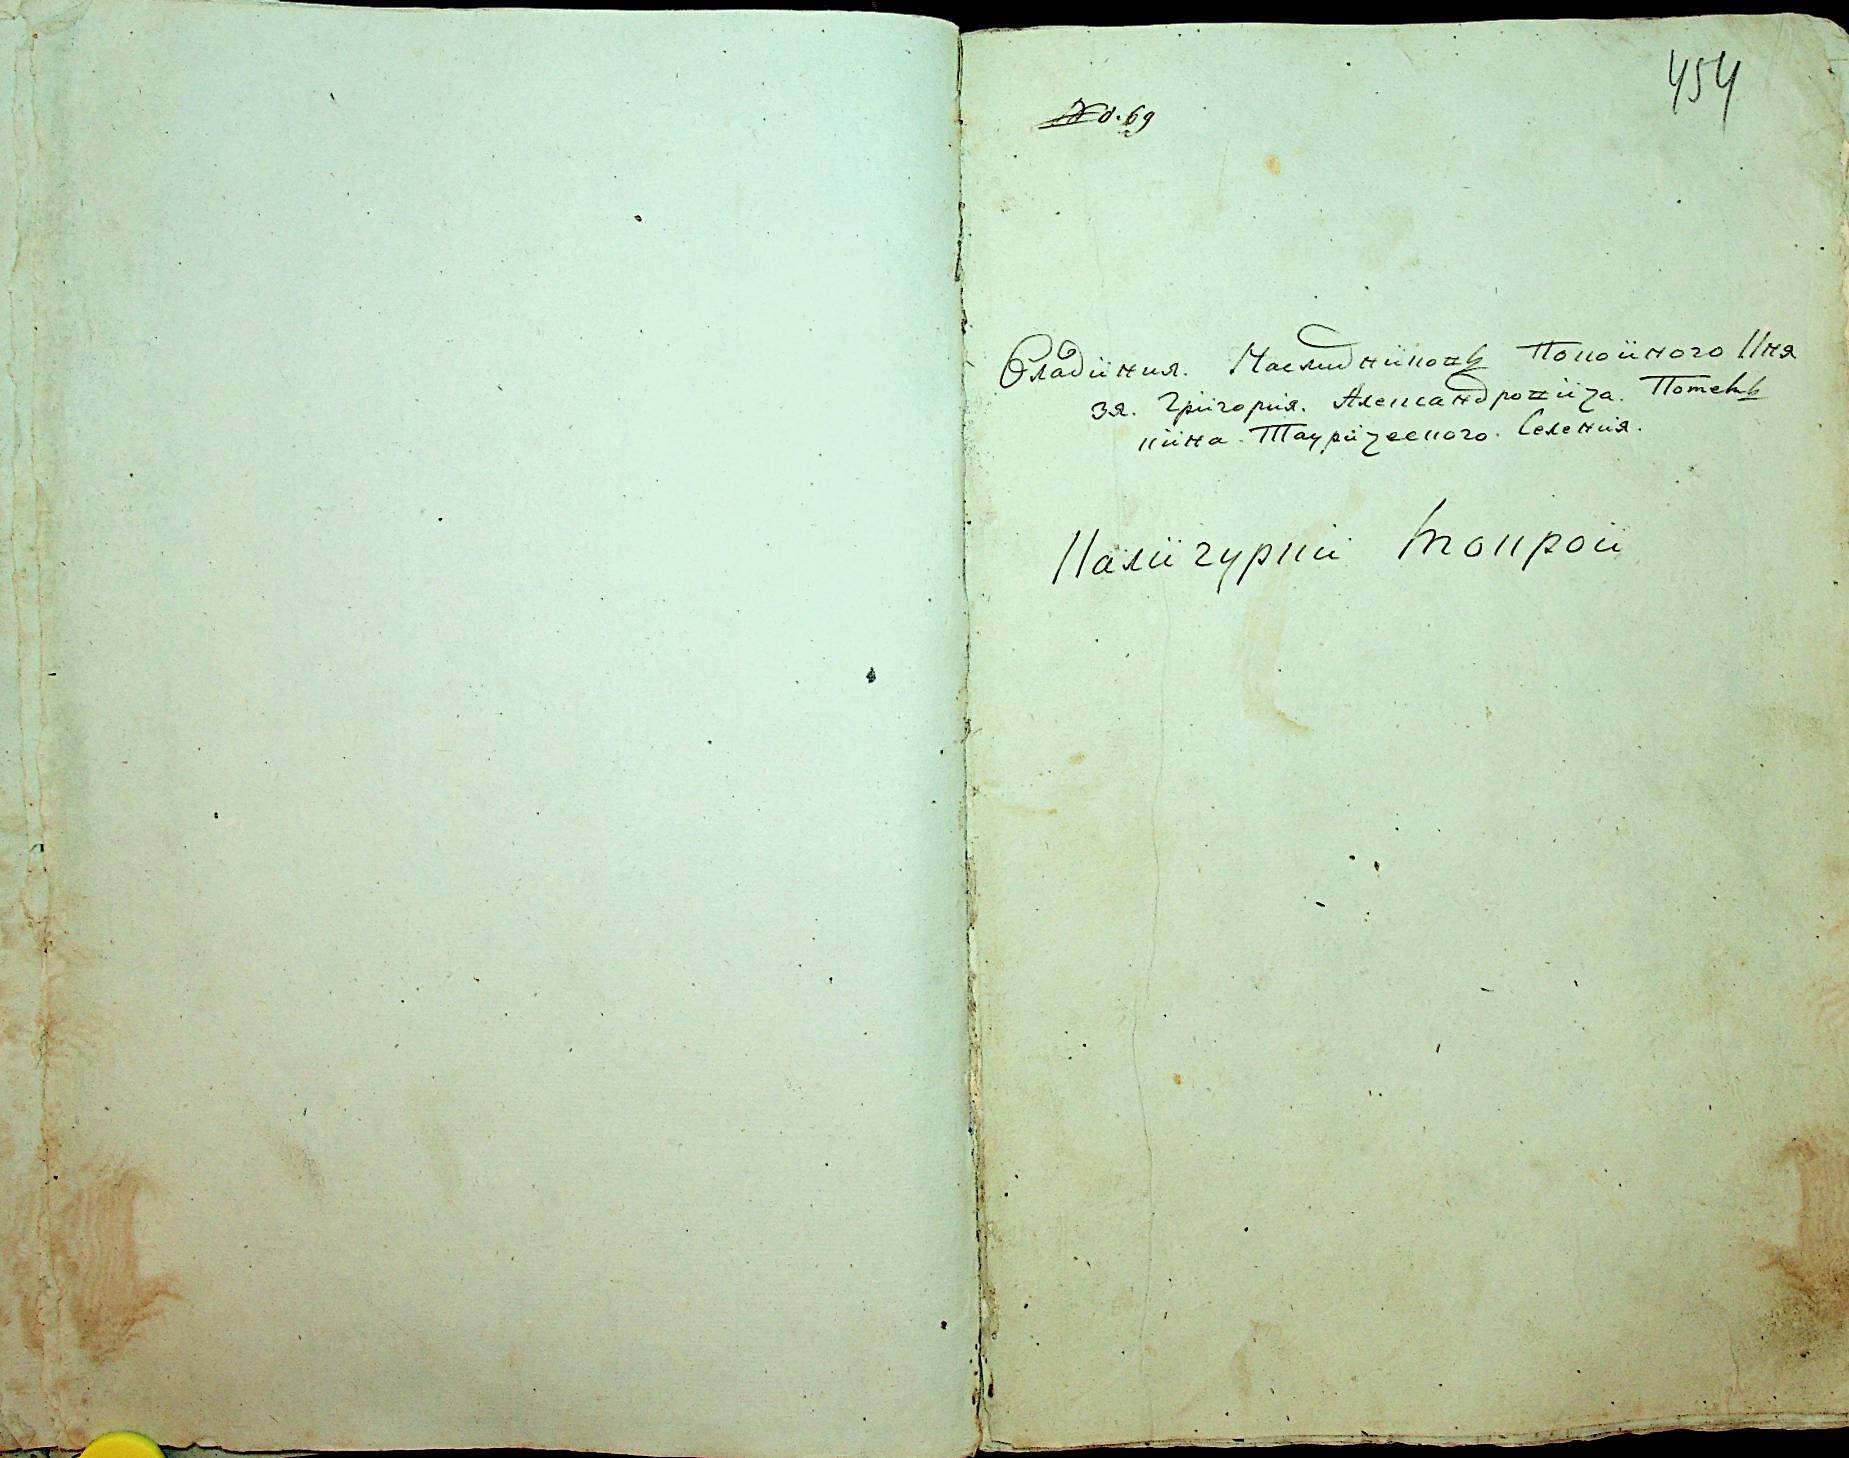 454
№ 69
Владѣния. Наследниковъ Покойного Кня
зя. Григория. Александровича. Потемъ
кина. Таурическаго. Селения.
Каличуркий Втокрой